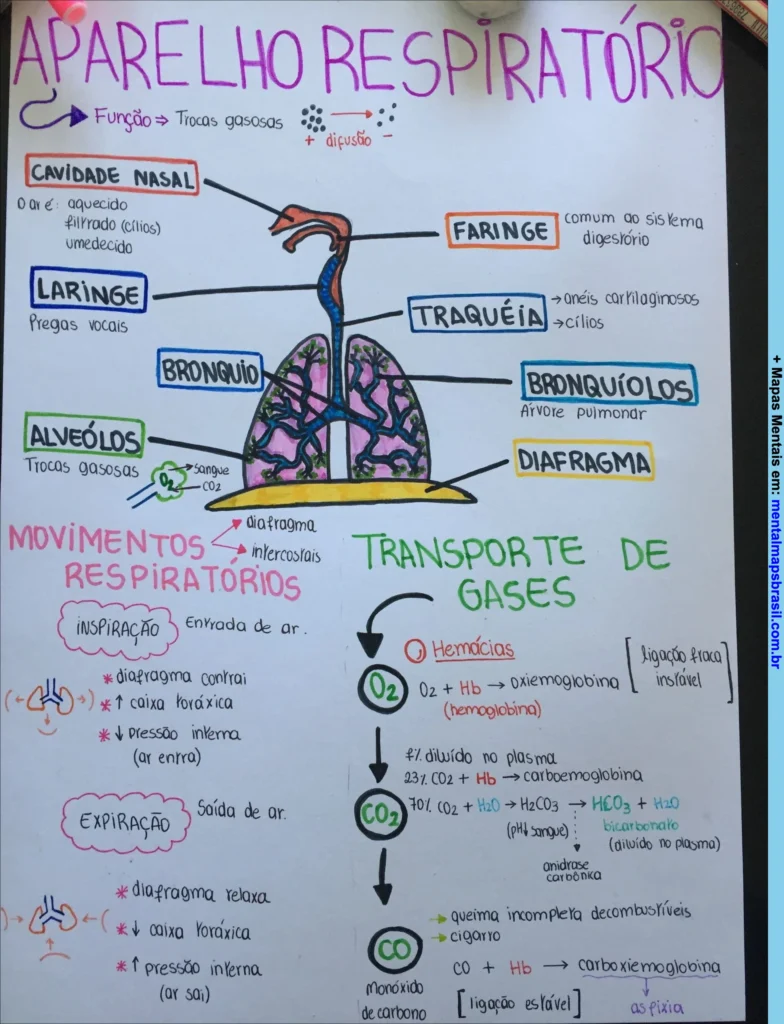 APARELHO RESPIRATÓRIO
Função ⇒ Trocas gasosas
+ difusão -
CAVIDADE NASAL
O ar é: aquecido
filtrado (cílios)
umedecido
FARINGE
comum ao sistema
digestório
LARINGE
Pregas vocais
TRAQUÉIA
→ anéis cartilaginosos
→ cílios
BRONQUIO
BRONQUÍOLOS
Árvore pulmonar
ALVEÓLOS
Trocas gasosas
O2
sangue
CO2
DIAFRAGMA
MOVIMENTOS
RESPIRATÓRIOS
diafragma
intercostais
INSPIRAÇÃO
Entrada de ar.
* diafragma contrai
* ↑ caixa toráxica
* ↓ pressão interna
(ar entra)
EXPIRAÇÃO
Saída de ar.
* diafragma relaxa
* ↓ caixa toráxica
* ↑ pressão interna
(ar sai)
TRANSPORTE DE
GASES
Hemácias
O2
O2 + Hb → oxiemoglobina
(hemoglobina)
[ligação fraca
instável]
CO2
7% diluído no plasma
23% CO2 + Hb → carboemoglobina
70% CO2 + H2O → H2CO3 → HCO3 + H2O
(pH↓ sangue)
bicarbonato
(diluído no plasma)
anidrase
carbônka
CO
monóxido
de carbono
→ queima incompleta decombustíveis
→ cigarro
CO + Hb → carboxiemoglobina
[ligação estável]
asfixia
+ Mapas Mentais em: mentalmapsbrasil.com.br